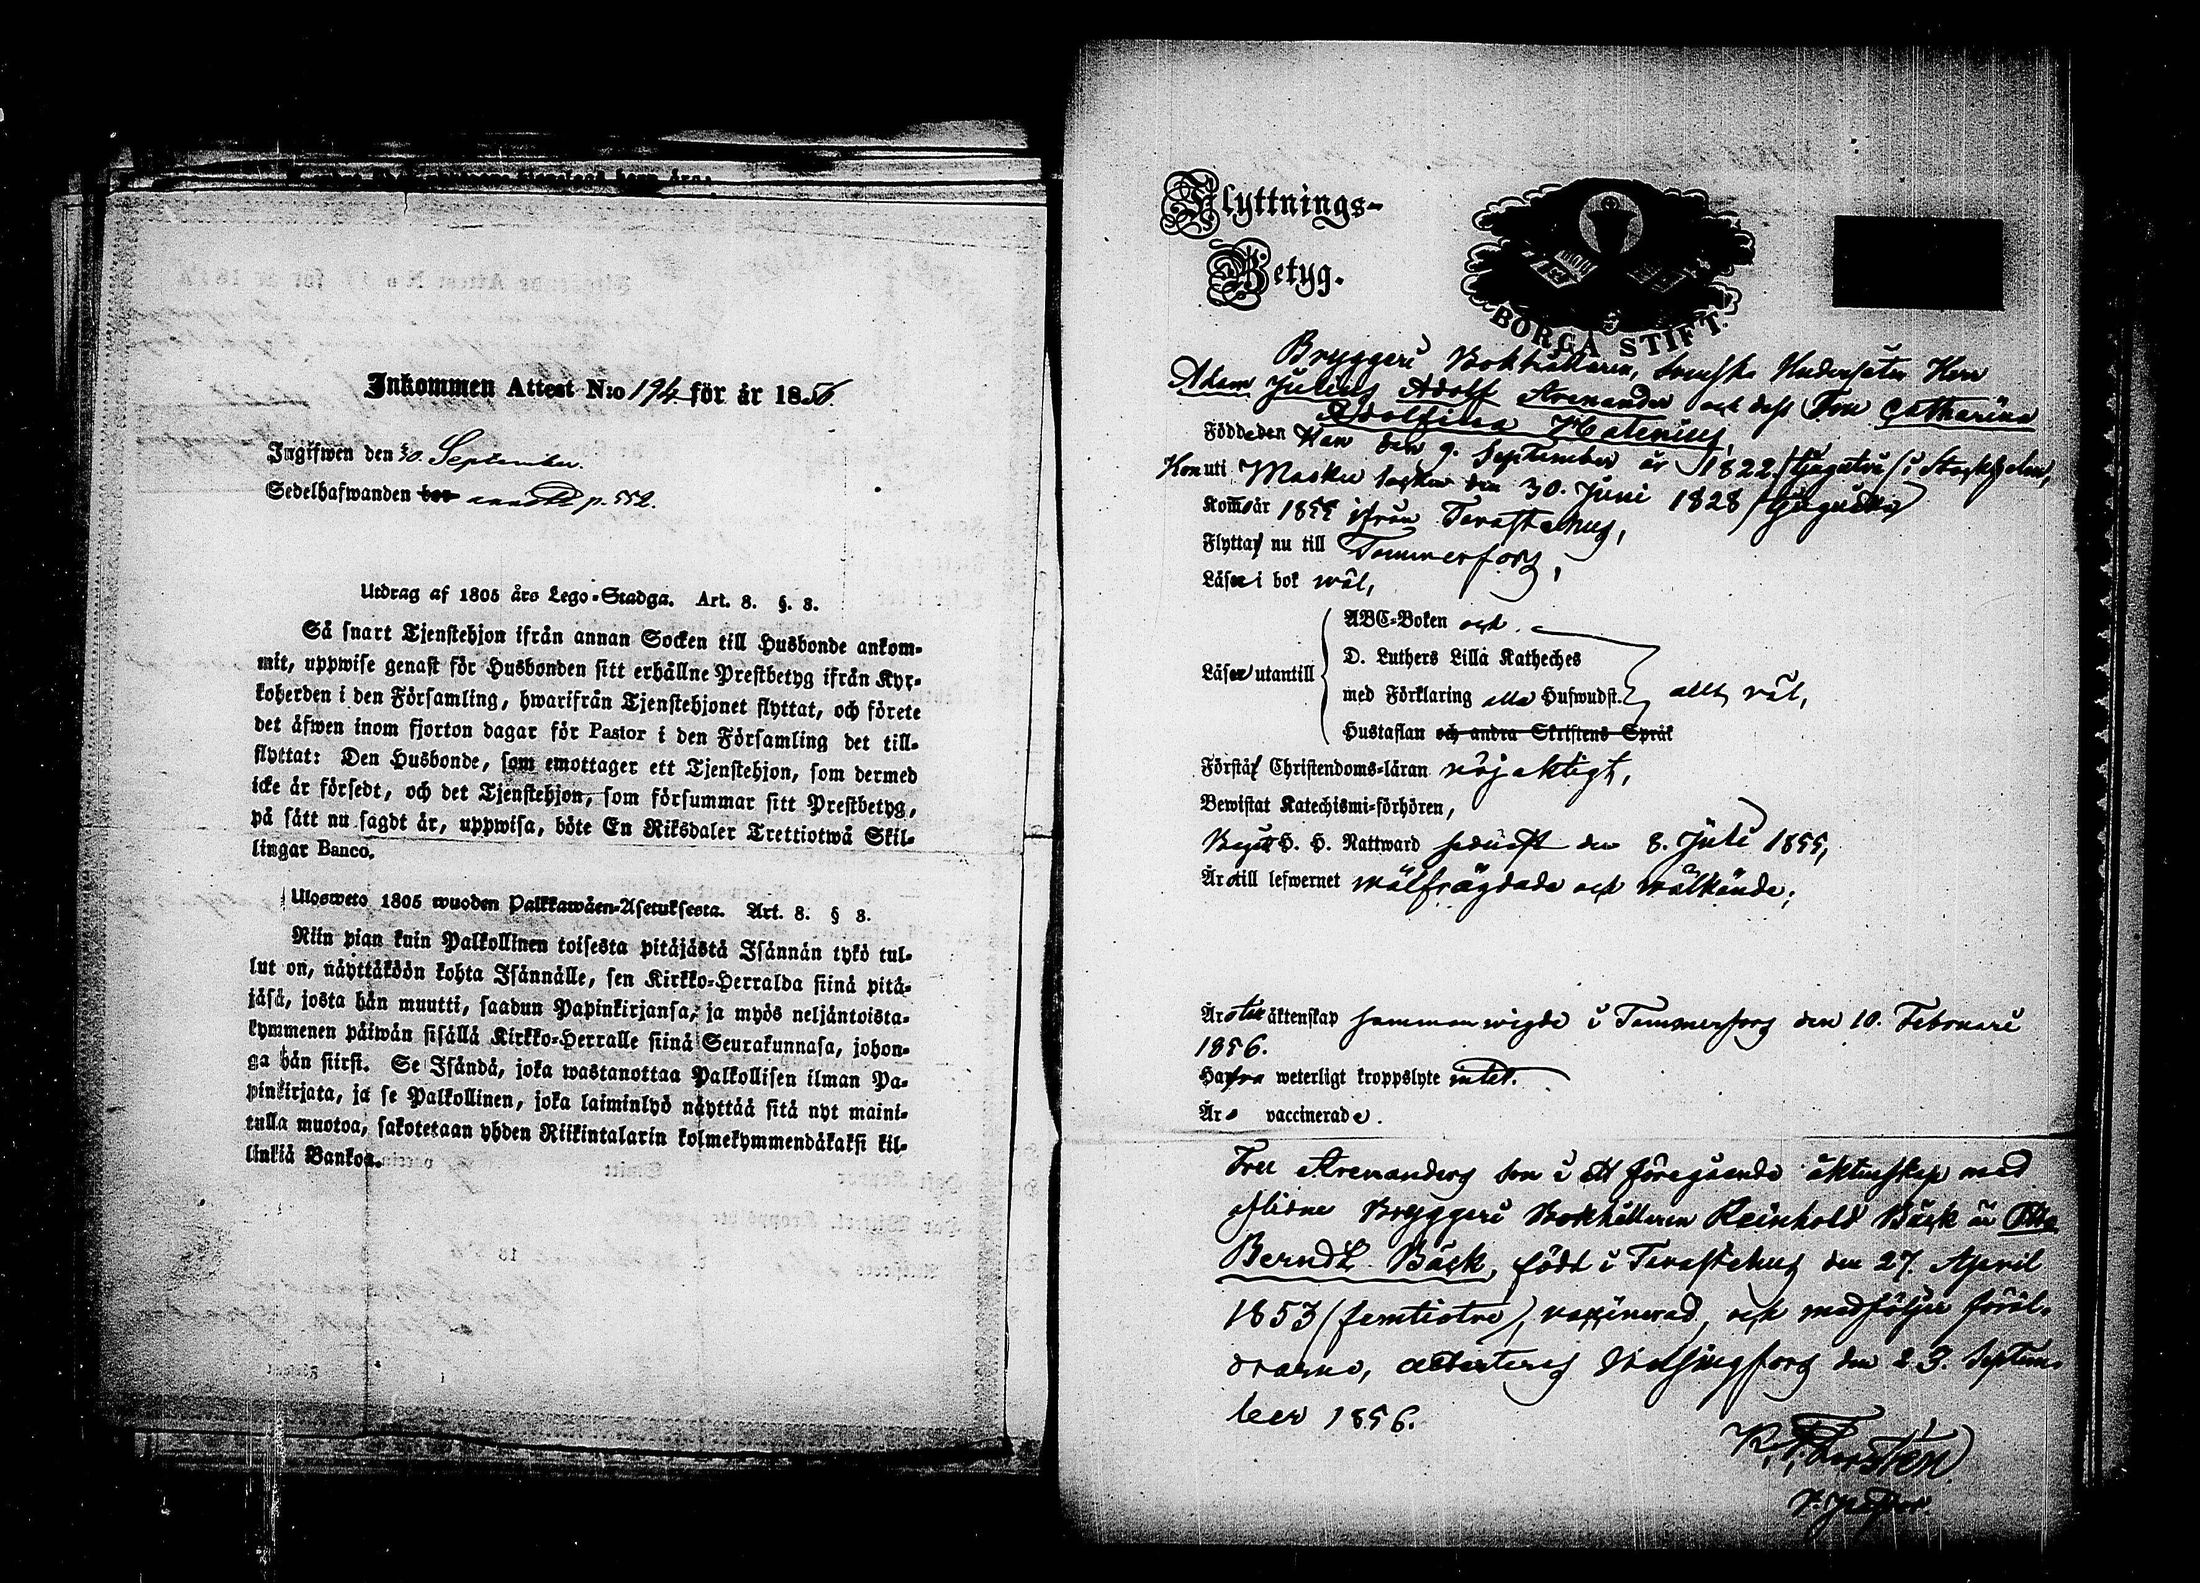 Inkommen Attest N:o 194 för år 1856.
Ingifwen den 30. September.
Sedelhafwanden bor p. 552.
Utdrag af 1805 års Lego-Stadga. Art. 8. §. 3.
Så snart Tjenstehjon ifrån annan Socken till Husbonde ankom-
mit, uppwise genast för Husbonden sitt erhållne Prestbetyg ifrån Kyr-
koherden i den Församling, hwarifrån Tjenstehjonet flyttat, och förete
det äfwen inom fjorton dagar för Pastor i den Församling det till-
flyttat: Den Husbonde, som emottager ett Tjenstehjon, som dermed
icke är försedt, och det Tjenstehjon, som försummar sitt Prestbetyg,
på sätt nu sagdt är, uppwisa, böte En Riksdaler Trettiotwå Skil-
lingar Banco.
Ulosweto 1805 wuoden Palkkawäen-Asetuksesta. Art. 8. § 3.
Niin pian kuin Palkollinen toisesta pitäjästä Isännän tykö tul-
lut on, näyttäköön kohta Isännälle, sen Kirkko-Herralda siinä pitä-
jäsä, josta hän muutti, saadun Papinkirjansa, ja myös neljäntoista-
kymmenen päiwän sisällä Kirkko-Herralle siinä Seurakunnasa, johon-
ga hän siirsi. Se Isändä, joka wastanottaa Palkollisen ilman Pa-
pinkirjata, ja se Palkollinen, joka laiminlyö näyttää sitä nyt maini-
tulla muotoa, sakotetaan yhden Riikintalarin kolmekymmendäkaksi kil-
linkiä Bankoa.
Flyttnings-
Betyg.
BORGÅ STIFT.
Bryggeri Bokhållaren, Svenske Undersåten Herr
Adam Julius Adolf Arenander och dess Fru Catharina
Adolfina Matenius,
Födde den Han den 9. September år 1822 /tjugutvå/ i Stockholm,
Hon uti Masku socken den 30. Juni 1828 /tjuguåtta/
Kommo år 1855 ifrån Tavastehus,
Flytta nu till Tammerfors,
Läser i bok wäl,
ABC-Boken och
D. Luthers Lilla Katheches
Läser utantill med Förklaring alla Hufwudst. allt väl,
Hustaflan och andra Skriftens Språk
Förstå Christendoms-läran nöjaktigt,
Bewistat Katechismi-förhören,
Begått H. H. Nattward sednast den 8. Juli 1855,
Äro till lefwernet wälfrägdade och wälkände;
Äro till äktenskap sammanwigde i Tammerfors den 10. Februari
1856.
Hafva weterligt kroppslyte intet.
Äro vaccinerade.
Fru Arenanders son i ett föregående äktenskap med
aflidne Bryggeri Bokhållaren Reinhold Bäck är Otto
Berndt Bäck, född i Tavastehus den 27. April
1853 (femtiotre), vaxinerad, och medföljer föräl-
drarne, attesteras Helsingfors den 23. Septem-
ber 1856.